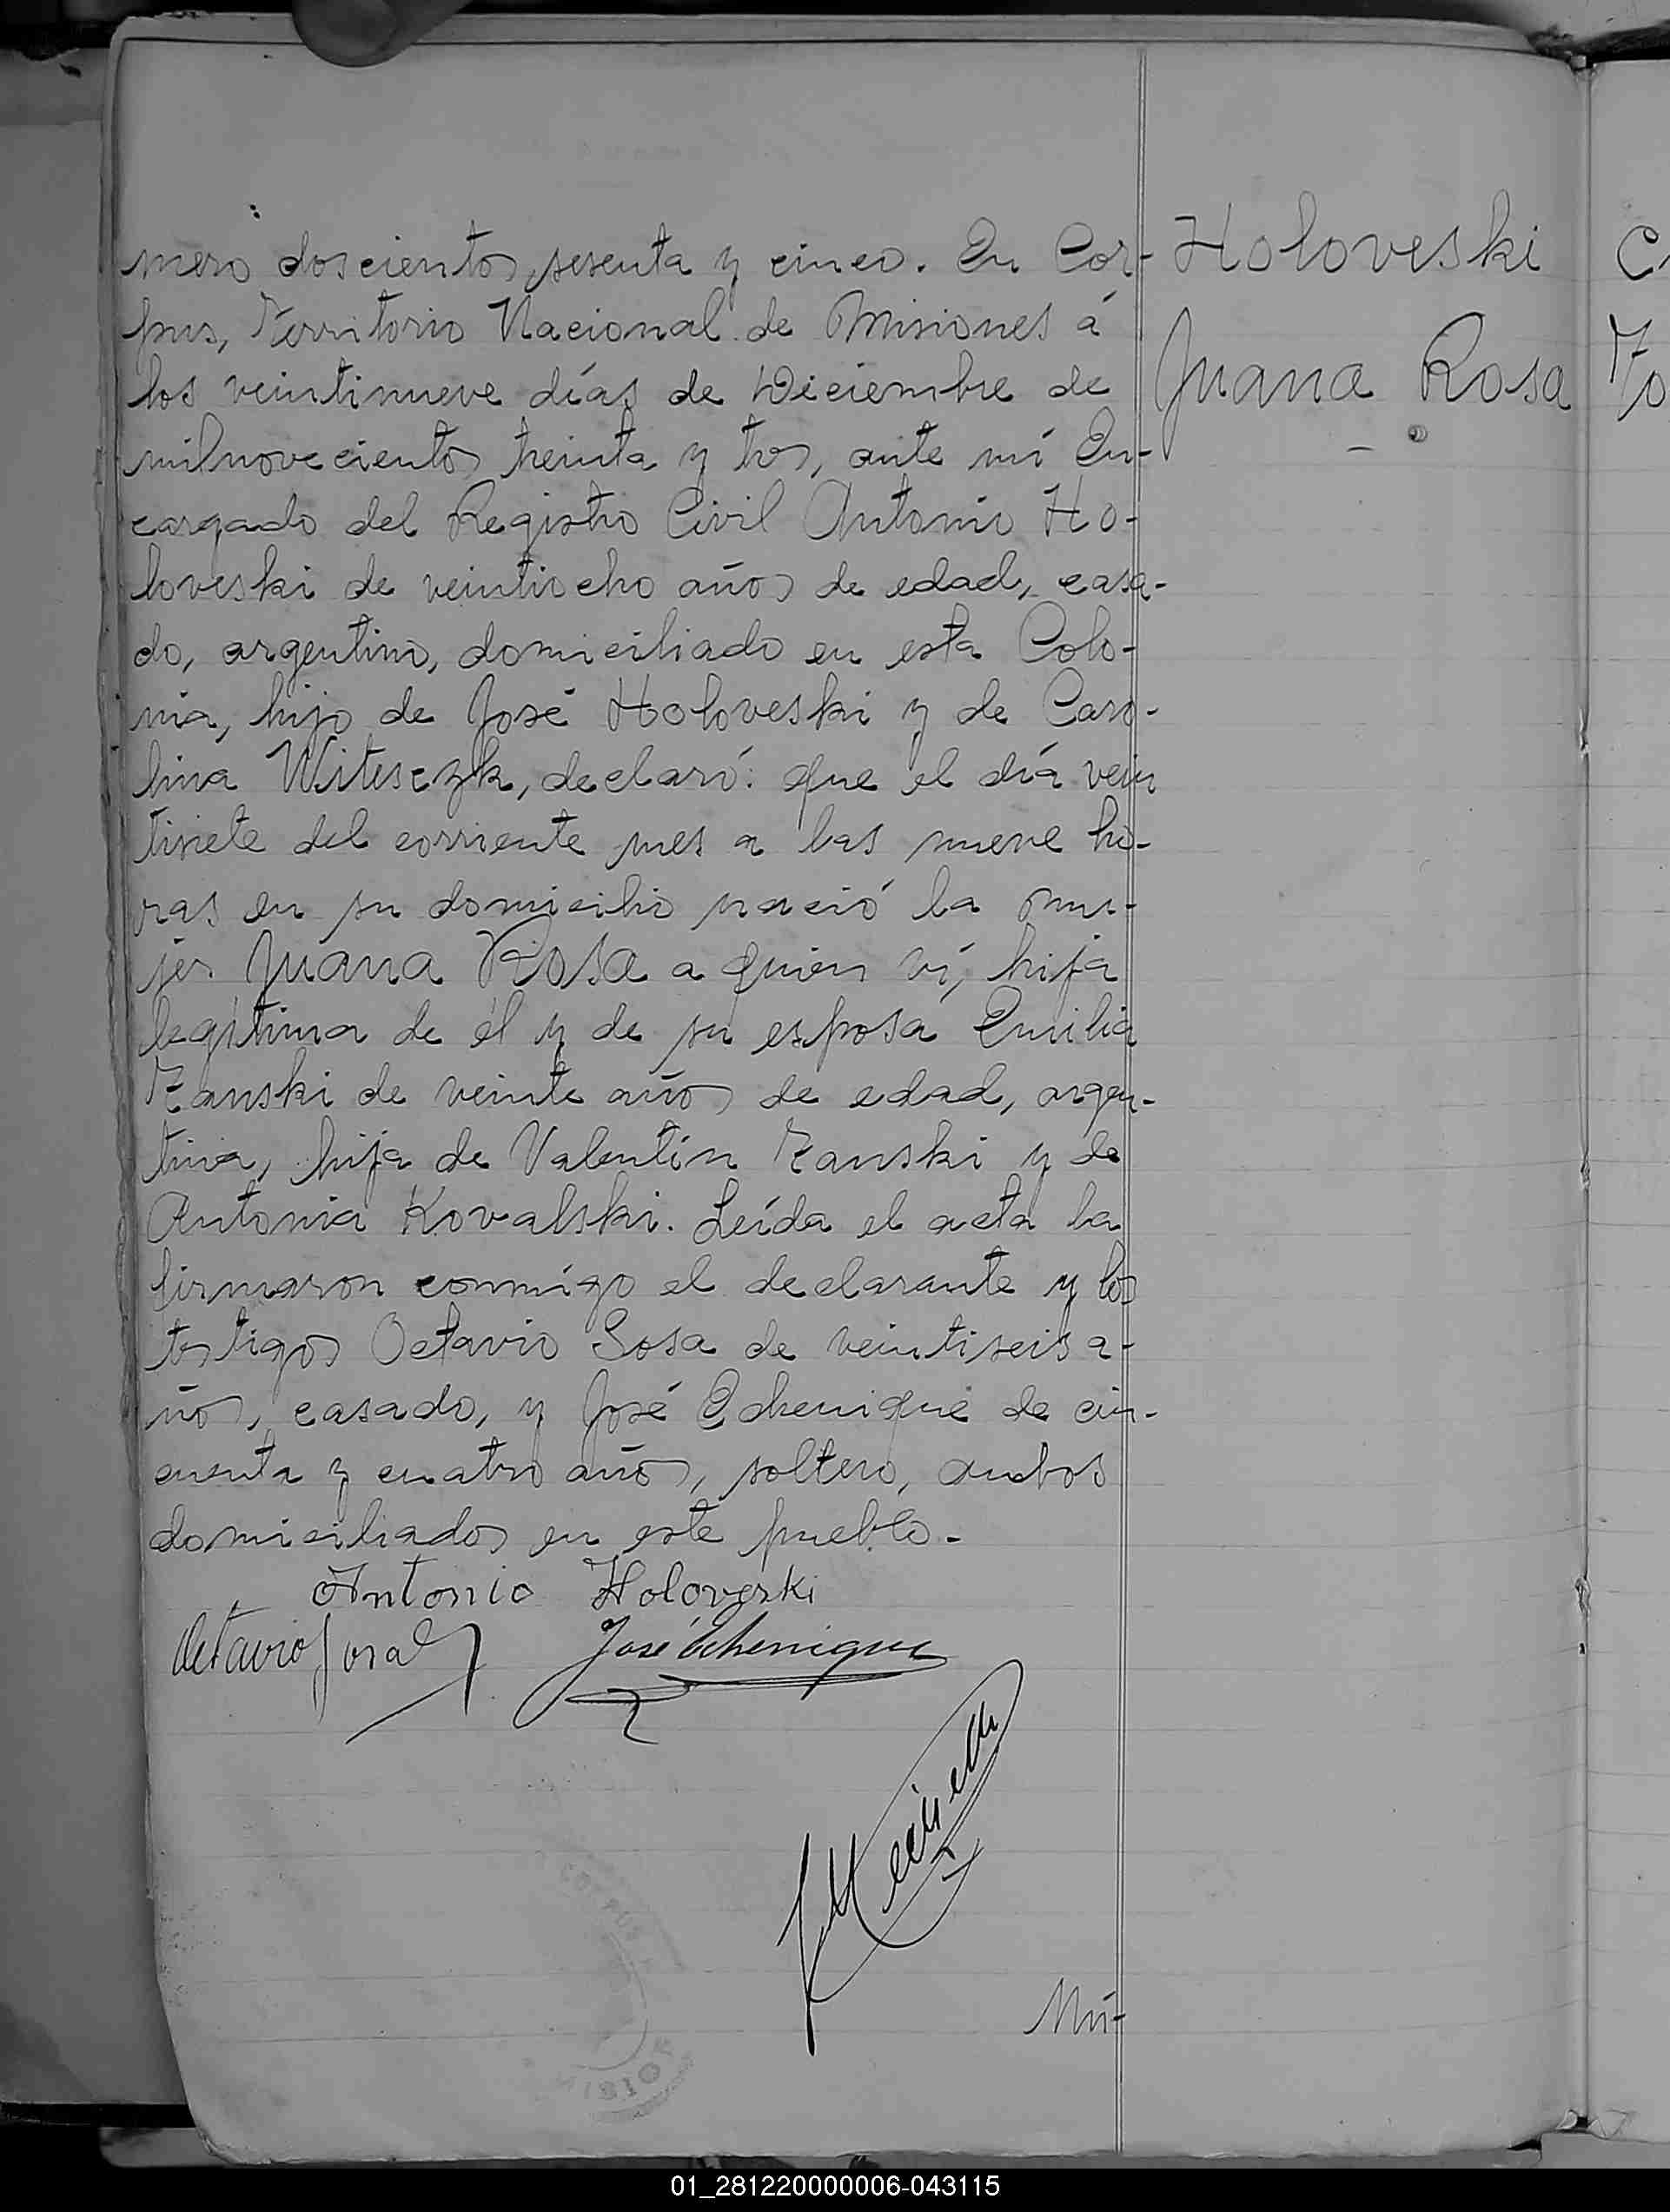 mero doscientos sesenta y cinco. En Cor-
pus, Territorio Nacional de Misiones á
los veintinueve días de Diciembre de
milnovecientos treinta y tres, ante mí En-
cargado del Registro Civil Antonio Ho-
loveski de veintiocho años de edad, casa-
do, argentino, domiciliado en esta Colo-
nia, hijo de José Holoveski y de Caro-
lina Witesczk, declaró: que el día vein
tisiete del corriente mes a las nueve ho-
ras en su domicilio nació la mu-
jer Juana Rosa a quien ví, hija
legítima de él y de su esposa Emilia
Zanski de veinte años de edad, argen-
tina, hija de Valentín Zanski y de
Antonia Kovalski. Leída el acta la
firmaron conmigo el declarante y los
testigos Octavio Sosa de veintiseis a-
ños, casado, y José Echenique de cin-
cuenta y cuatro años, soltero, ambos
domiciliados en este pueblo.-
Antonio Holoveski
Octavio Sosa
José Echenique
Nú-
Holoveski
Juana Rosa
01_281220000006-043115